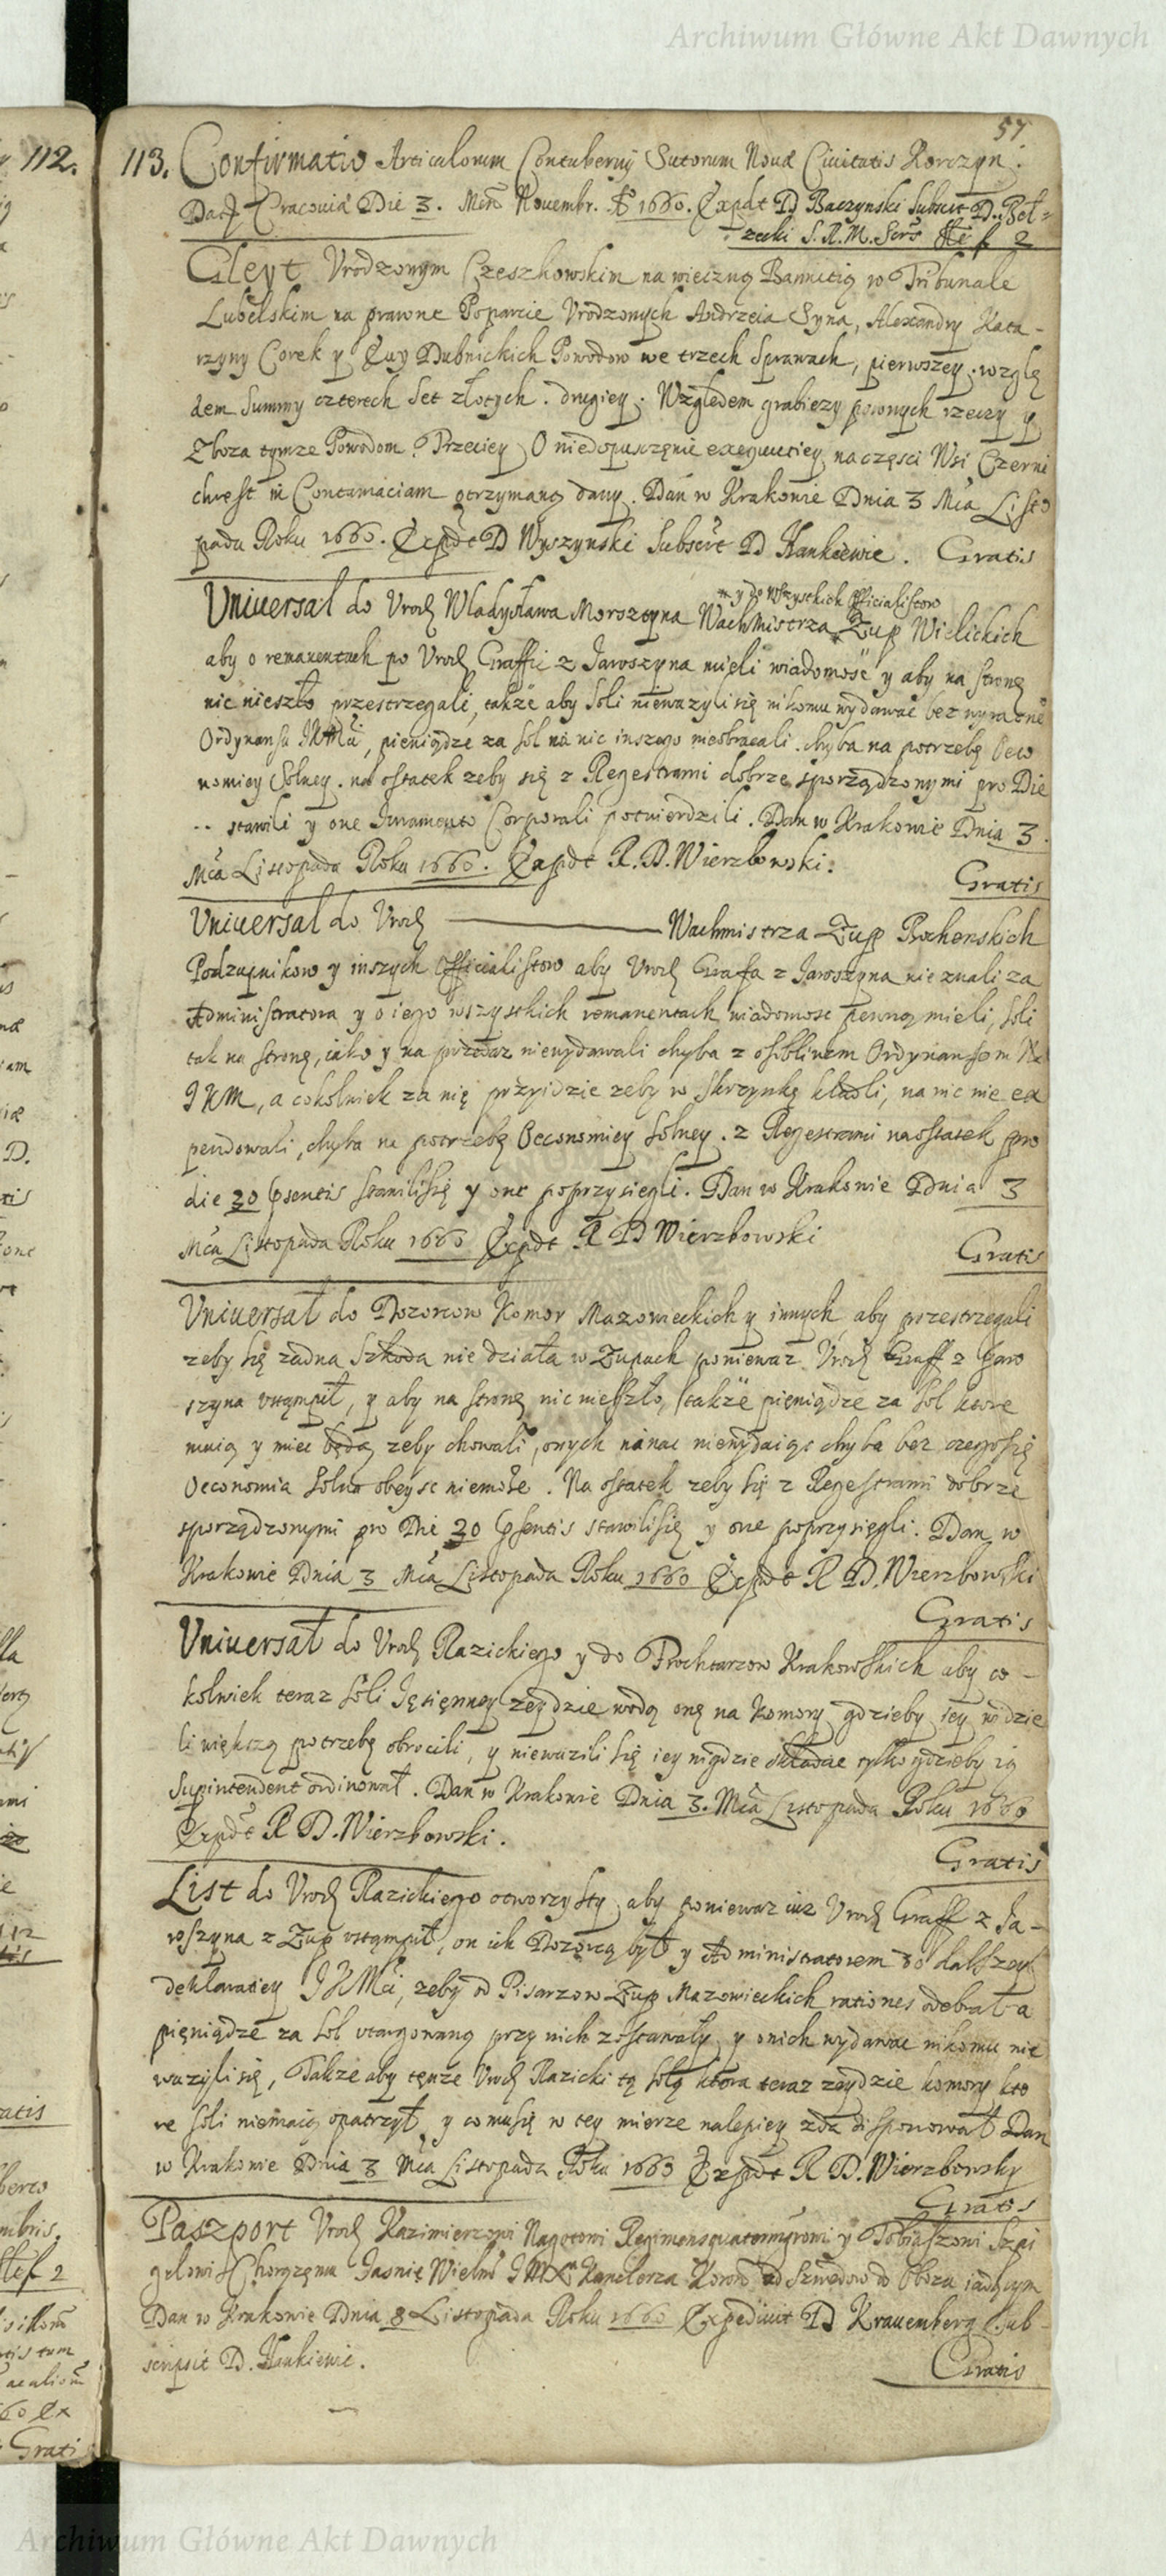 Archiwum Główne Akt Dawnych
57
112.
113. Confirmatio Articulorum Contubernij Sutorum Nova Civitatis Korczyn.
Dat. Cracoviæ Die 3. Novembr. Ao 1660. Expdt D Baczynski Subscr D. Beł-
zecki S. R. M. Scrs f 2
Gleyt Vrodzonym Czeszkowskim na wieczną Bannitią w Tribunale
Lubelskim na prawne Poparcie Vrodzonych Andrzeia Syna, Alexandry Kata-
rzyny Corek y Ewy Dubnickich Powodow we trzech Sprawach, pierwszey. wzglę
dem Summy czterech set złotych. drugiey. Względem grabiezy pewnych rzeczy y
Zboza tymze Powodom. Trzeciey O niedopuszczenie exequutiey na części Wsi Czerni
chęst in Contumaciam otrzymaną dany. Dan w Krakowie Dnia 3 Mca Listo
pada Roku 1660. Expdt D Wyszynski Subscr D Hankiewic. Gratis
Uniuersał do Vrodz Władysława Morsztyna Wachmistrza Zup Wielickich
y do Wszystkich Officialistow
aby o remanentach po Vrodz Graffie z Jaroszyna mieli wiadomość y aby na stronę
nic nieszło przestrzegali, także aby soli niewazyli się nikomu wydawać bez wyrazne
Ordynansu JKMci, pieniądze za sol na nic inszego nieobracali. chyba na potrzebę Oeco
nomiey Solney. na ostatek zeby się z Regestrami dobrze sporządzonymi pro Die
.. stawili y one Juramento Corporali potwierdzili. Dan w Krakowie Dnia 3.
Mca Listopada Roku 1660. Expdt R. D. Wierzbowski.
Gratis
Uniuersał do Vrodz ——— Wachmistrza Zup Bochenskich
Podzupnikow y inszych Officialistow aby Vrodz Graffa z Jaroszyna nie znali za
Administratora y o iego wszystkich remanentach wiadomosc pewną mieli, soli
tak na stronę, iako y na przedaz niewydawali chyba z osobliwem Ordynansem
JKM, a cokolwiek za nię przyidzie zeby w skrzynkę kładli, na nic nie ex
pendowali, chyba na potrzebę Oeconomiey solney. z Regestrami naostatek pro
die 20 psentis stawili się y one poprzysiegli. Dan w Krakowie Dnia 3
Mca Listopada Roku 1660 Expdt R D Wierzbowski
Gratis
Uniuersał do Dozorcow Komor Mazowieckich y innych, aby przestrzegali
zeby się zadna Szkoda nie działa w Zupach poniewaz Vrodz Graff z Jaro
szyna vstąpił, y aby na stronę nic nieszło, także pieniądze za sol ktore
maią y miec będą zeby chowali, onych nanic niewydaiąc chyba bez czego się
Oeconomia Solna obeysc niemoże. Na ostatek zeby się z Regestrami dobrze
sporządzonymi pro Die 20 psentis stawili się y one poprzysięgli. Dan w
Krakowie Dnia 3 Mca Listopada Roku 1660 Expdt R D. Wierzbowski
Gratis
Uniuersał do Vrodz Razickiego y do Prochtarzow Krakowskich aby co-
kolwiek teraz soli Jesienney zeydzie wodą onę na komory gdzieby iey widzie
li większą potrzebę obrocili, y niewazili się iey nigdzie składac tylko gdzieby ią
Supintendent ordinował. Dan w Krakowie Dnia 3. Mca Listopada Roku 1660
Expdt R D. Wierzbowski.
Gratis
List do Vrodz Razickiego otworzysty, aby poniewaz iuz Vrodz Graff z Ja-
roszyna z Zup vstąpił, on ich Dozorcą był y Administratorem do dalszey
deklaratiey JKMci, zeby od Pisarzow Zup Mazowieckich rationes odebrał a
pieniądze za sol vtargowaną przy nich zostawały, y onich wydawac nikomu nie
wazyli się, Takze aby tenze Vrodz Razicki tą solą ktora teraz zeydzie komory kto
re soli niemaią opatrzył, y co musię w tey mierze nalepiey zda disponował Dan
w Krakowie Dnia 3 Mca Listopada Roku 1660 Expdt R D. Wierzbowsky
Gratis
Paszport Vrodz Kazimierzowi Nagotowi y Tobiaszowi Szpi
gelowi Chorązemu Jasnie Wielm JMX Kanclerza Koron od Szwedow do Obozu iadącym
Dan w Krakowie Dnia 8 Listopada Roku 1660 Expediuit D Krauemberg Sub-
scripsit D. Hankiewic.
Gratis
Archiwum Główne Akt Dawnych